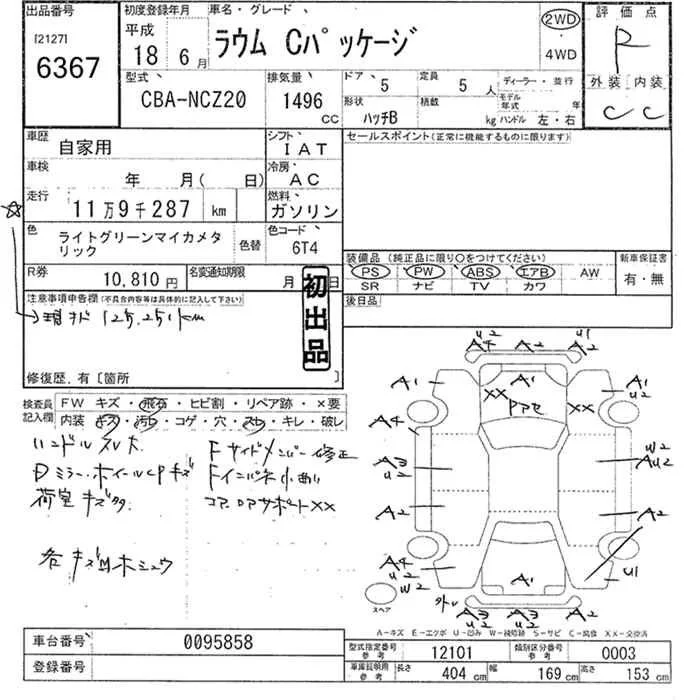 出品番号 初度登録年月 車名・グレード 評価点
[2127] 平成 ラウム Cパッケージ 2WD R
6367 18年 6月 4WD 外装 内装
型式 排気量 ドア 5 定員 5人 ディーラー・並行 C C
CBA-NCZ20 1496 CC 形状 ハッチB 積載 kg モデル年式 年 ハンドル 左・右
車歴 自家用 シフト IAT セールスポイント(正常に機能するものに限ります)
車検 年 月( 日) 冷房 AC
走行 11万9千287 km 燃料 ガソリン
色 ライトグリーンマイカメタリック 色替 色コード 6T4
装備品(純正品に限り○をつけてください) 新車保証書
PS PW ABS エアB AW 有・無
SR ナビ TV カワ
R券 10,810円 名変通知期限 月 日 後日品
初出品
注意事項申告欄(不具合内容等は具体的に記入して下さい)
現状 125,251km
修復歴.有〔箇所
検査員記入欄 FW キズ・飛石・ヒビ割・リペア跡・×要
内装 キズ・汚れ・コゲ・穴・スレ・キレ・破レ
ハンドルスレ大 Fサイドメンバー修正
Dミラー・ホイールCPキズ Fインパネ小
荷室キズ コアロアサポートXX
各キズ凹ホシュウ
U2 U1
A4 A2 A2
A1 A1 A1 U2
XX XX
A4
A3 U2 W2 AU2
A2 A2
A4 U2 W2 A1 U1
スペア A3 U2 A3 U2 A2
A-キズ E-エクボ U-凹み W-補修跡 S-サビ C-腐食 XX-交換済
車台番号 0095858
登録番号
型式指定番号 参考 12101 類別区分番号 参考 0003
車庫証明用 参考 長さ 404 cm 幅 169 cm 高さ 153 cm